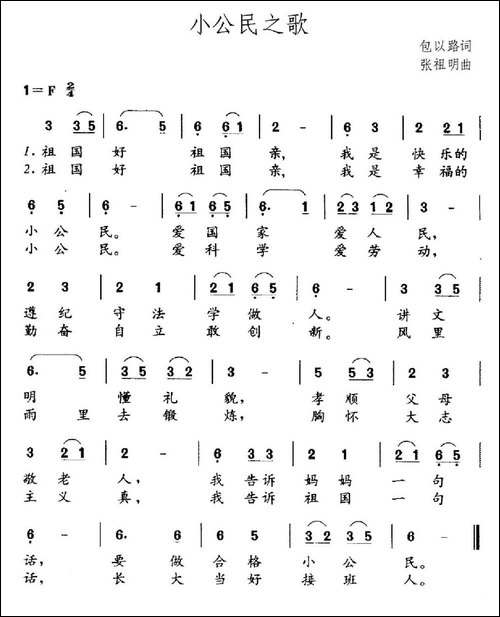 小公民之歌
包以路词
张祖明曲
1=F 2/4
3 35 | 6. 5 | 6 61 | 2 - | 6 3 | 2 21 |
1. 祖国好 祖国亲, 我是快乐的
2. 祖国好 祖国亲, 我是幸福的
6 5 | 6 - | 61 65 | 6. 1 | 23 12 | 3 - |
小公民。 爱国家 爱人民,
小公民。 爱科学 爱劳动,
2 3 | 2 1 | 21 65 | 6 - | 3 35 |
遵纪守法学做人。 讲文
勤奋自立敢创新。 风里
6. 5 | 35 32 | 3 - | 5 53 | 2 3 |
明 懂礼貌, 孝顺父母
雨里去锻炼, 胸怀大志
3 21 | 2 - | 61 65 | 2 1 | 21 65 |
敬老人, 我告诉妈妈一句
主义真, 我告诉祖国一句
6 - | 6 5 | 6 2 | 33 35 | 6 - ‖
话, 要做合格小公民。
话, 长大当好接班人。